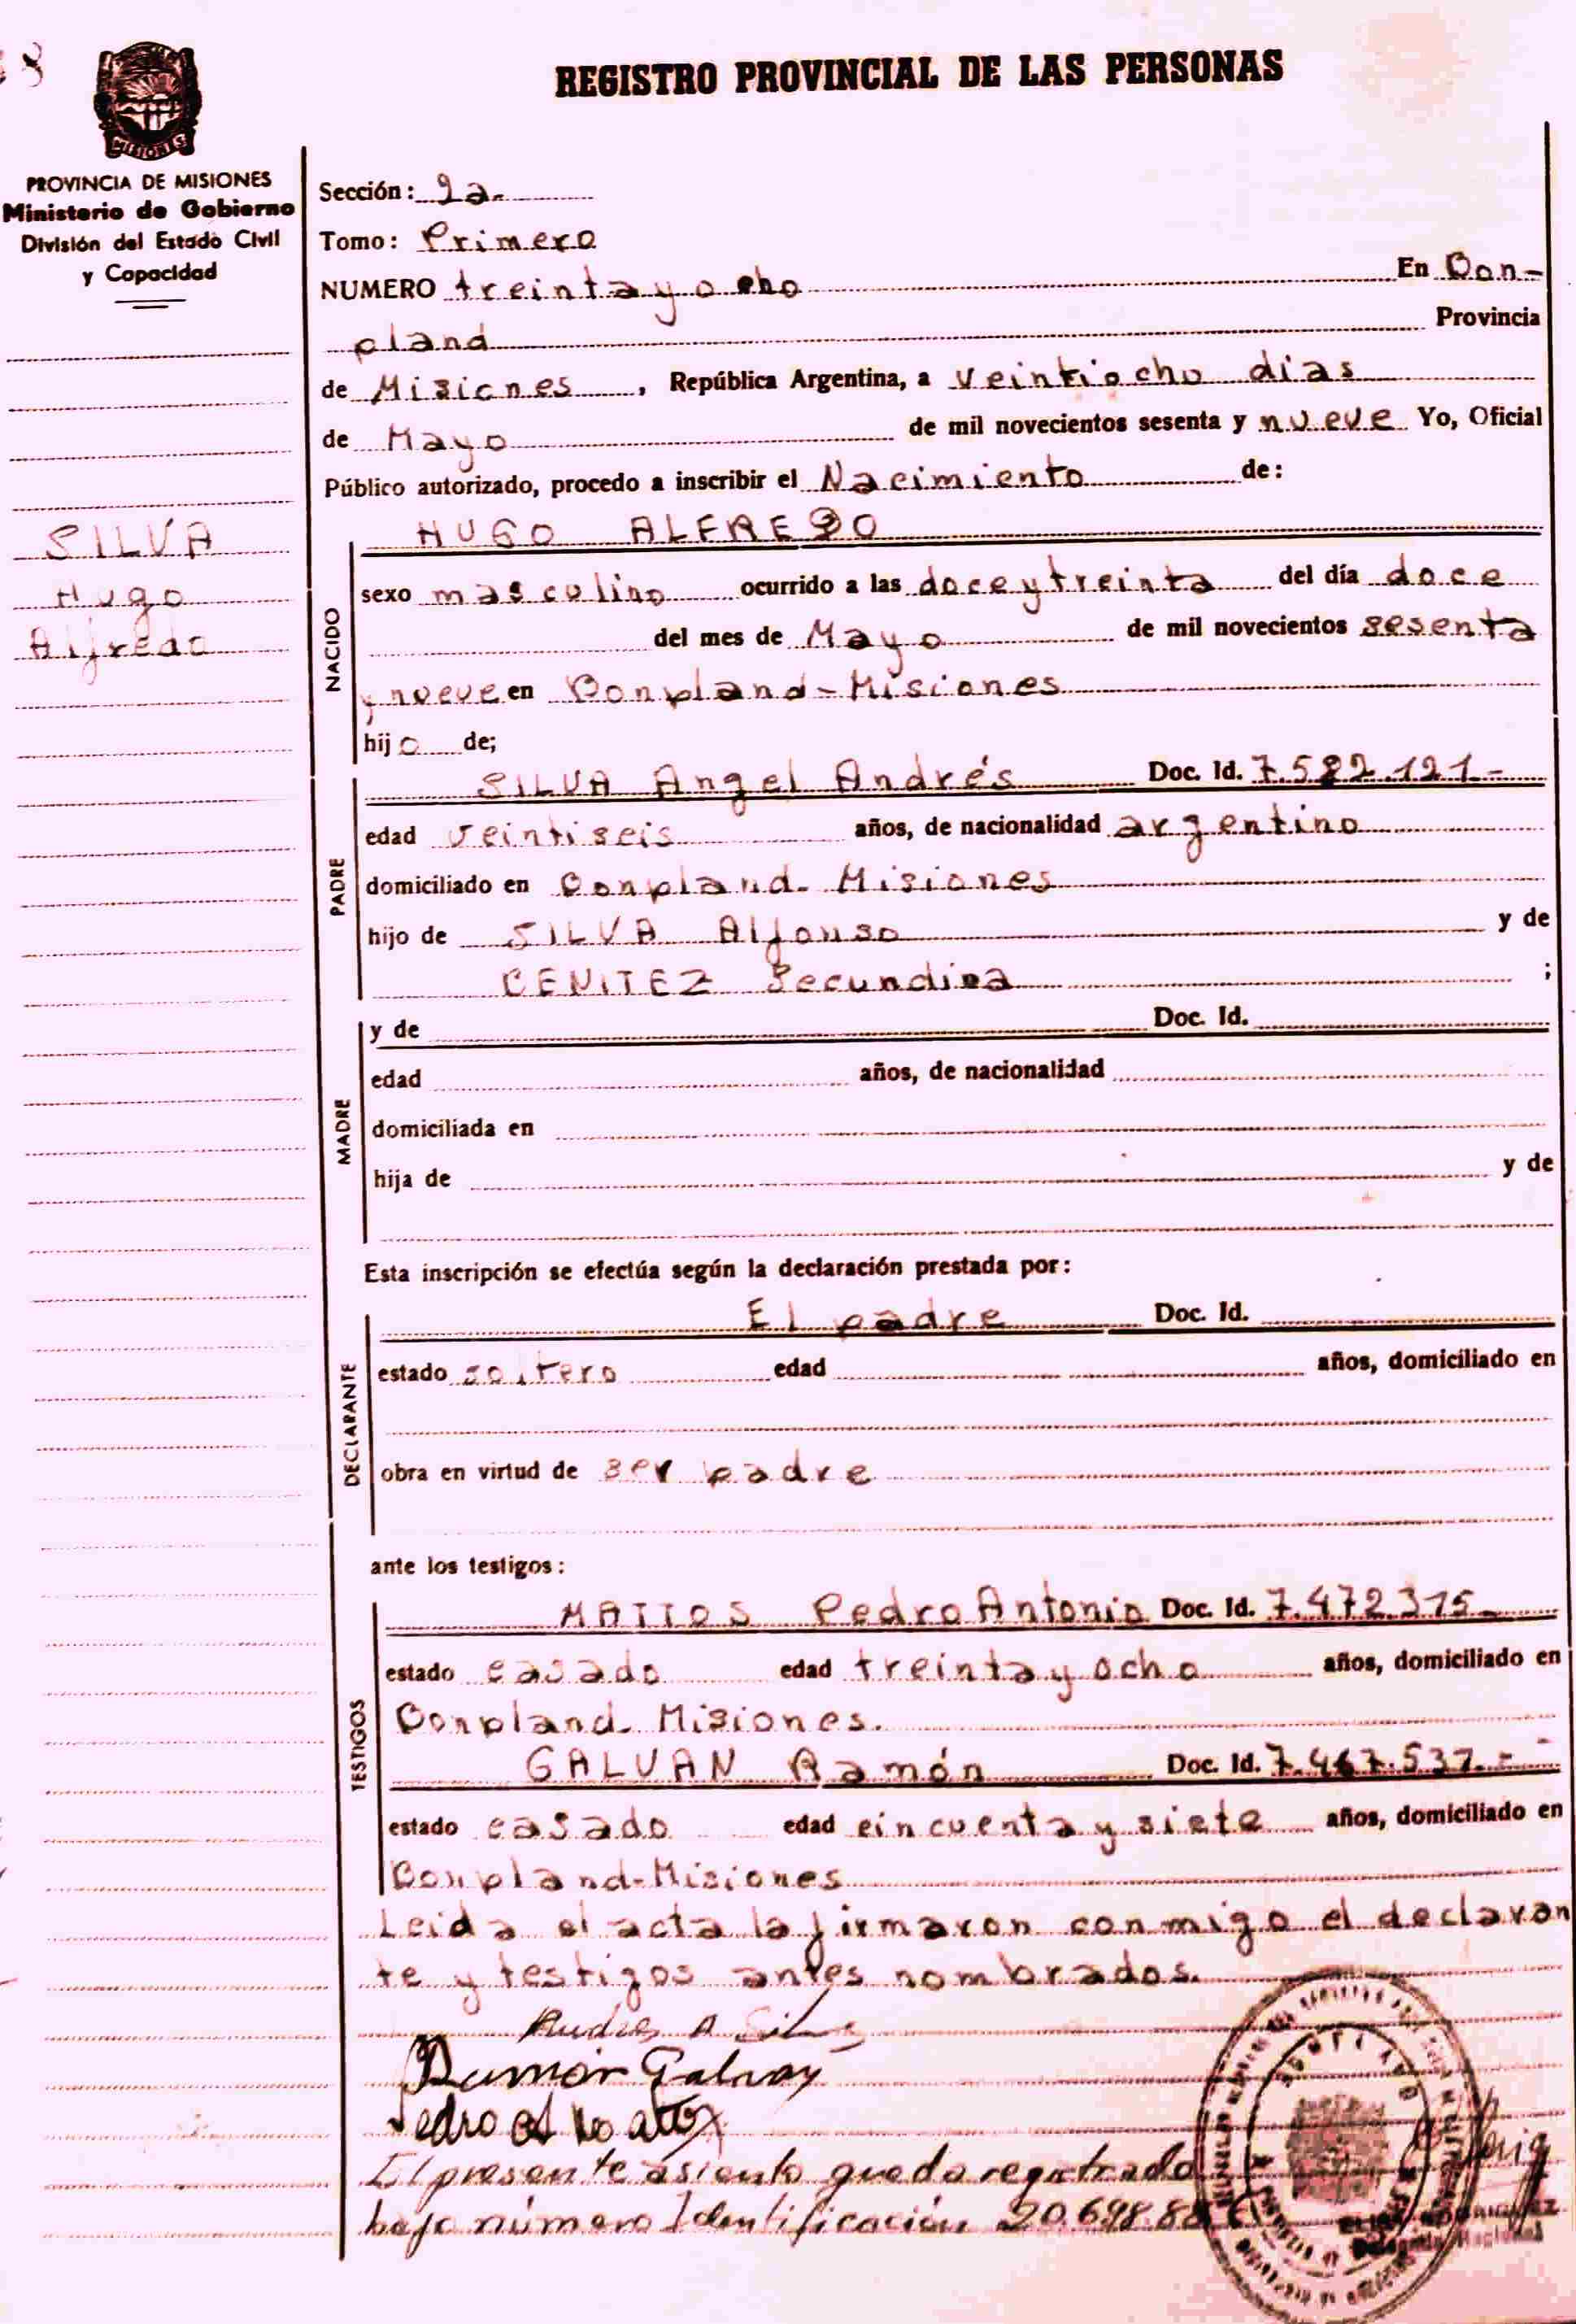 8
REGISTRO PROVINCIAL DE LAS PERSONAS
MISIONES
PROVINCIA DE MISIONES
Ministerio de Gobierno
División del Estado Civil
y Capacidad
SILVA
Hugo
Alfredo
Sección: 2a.
Tomo: Primero
NUMERO treinta y ocho En Bon-
pland Provincia
de Misiones, República Argentina, a veintiocho dias
de Mayo de mil novecientos sesenta y nueve Yo, Oficial
Público autorizado, procedo a inscribir el Nacimiento de:
NACIDO
HUGO ALFREDO
sexo masculino ocurrido a las doce y treinta del día doce
del mes de Mayo de mil novecientos sesenta
y nueve en Bonpland-Misiones
hijo de;
PADRE
SILVA Angel Andrés Doc. Id. 7.582.121-
edad veintiseis años, de nacionalidad argentino
domiciliado en Bonpland- Misiones
hijo de SILVA Alfonso y de
BENITEZ Secundina ;
MADRE
y de Doc. Id.
edad años, de nacionalidad
domiciliada en
hija de y de
Esta inscripción se efectúa según la declaración prestada por:
DECLARANTE
El padre Doc. Id.
estado soltero edad años, domiciliado en
obra en virtud de ser padre
ante los testigos:
TESTIGOS
MATTOS Pedro Antonio Doc. Id. 7.472.315-
estado casado edad treinta y ocho años, domiciliado en
Bonpland- Misiones.
GALVAN Ramón Doc. Id. 7.467.537.-
estado casado edad cincuenta y siete años, domiciliado en
Bonpland-Misiones
Leida el acta la firmaron conmigo el declaran
te y testigos antes nombrados.
Andres A Silva
Ramón Galvan
Pedro A Mattos
El presente asiento queda registrado
bajo número Identificación 20.698.88